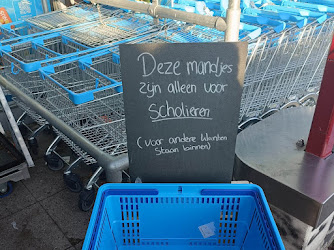 Deze mandjes
zijn alleen voor
scholieren
(voor andere klanten
staan binnen)